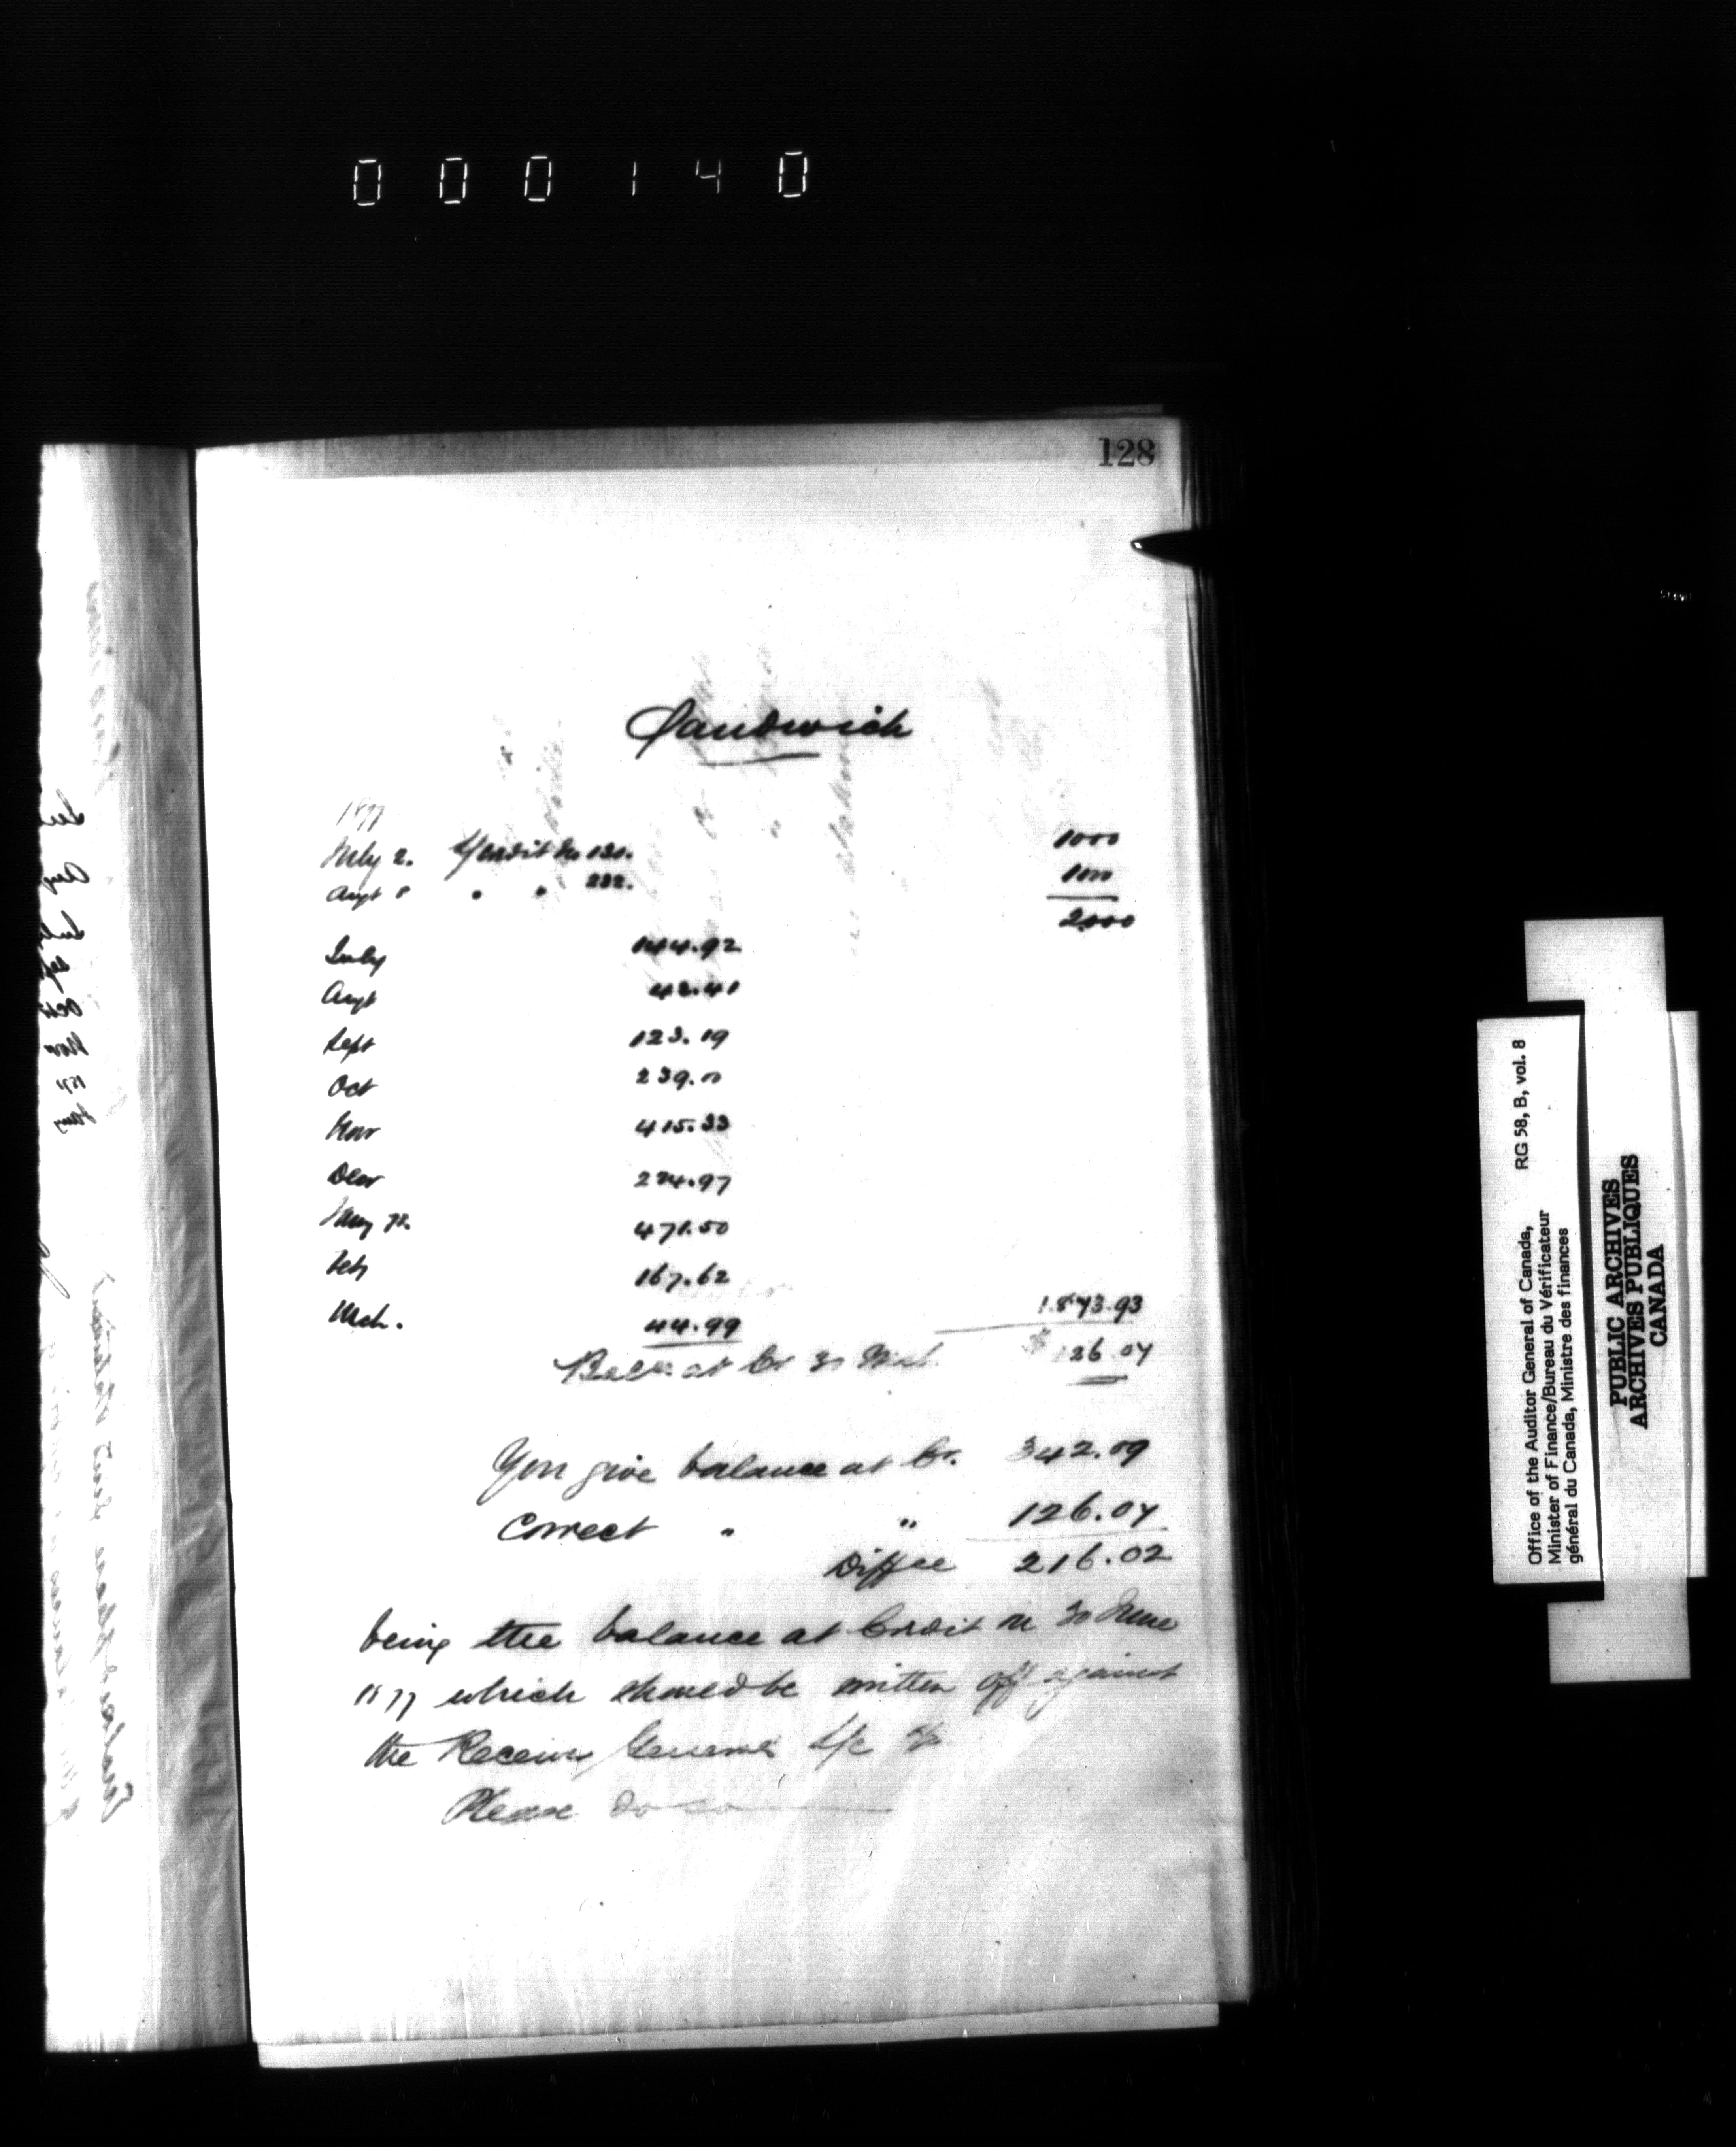 000140
128
Sandwich
1877
July 2. L/Credit No 131. 1000
Augt 8 " " 232. 1000
2000
July 144.92
Augt 42.41
Sept 123.19
Oct 239.00
Nov 415.33
Decr 224.97
Jany 78. 471.50
Feb 167.62
Mch. 44.99 1.873.93
Balce at Cr 31 Mch. $126.07
You give balance at Cr. 342.09
Correct " " 126.07
Diffce 216.02
being the balance at Credit on 30 June
1877 which should be written off against
the Receiver General L/c a/c
Please do so
Office of the Auditor General of Canada, RG 58, B, vol. 8
Minister of Finance/Bureau du Vérificateur
général du Canada, Ministre des finances
PUBLIC ARCHIVES
ARCHIVES PUBLIQUES
CANADA